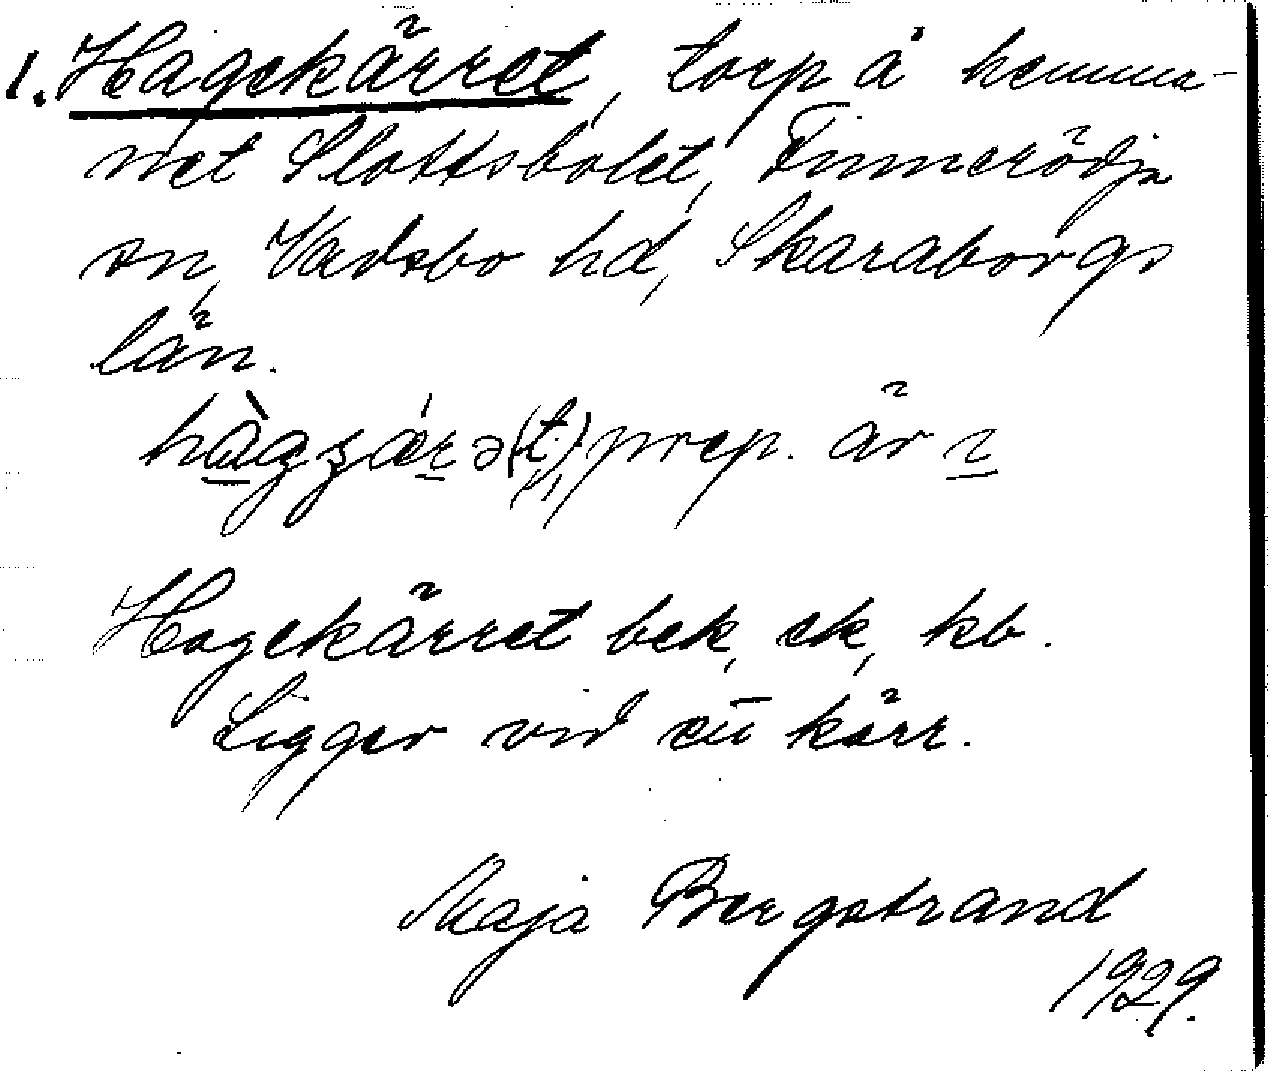 1. Hagekärret, torp å hemma-
net Slottsbolet, Finnerödja
sn, Vadsbo hd, Skaraborgs
län.
prep. är ɩ
Hagekärret bek, ek, kb.
Ligger vid ett kärr.
Maja Bergstrand
1929.